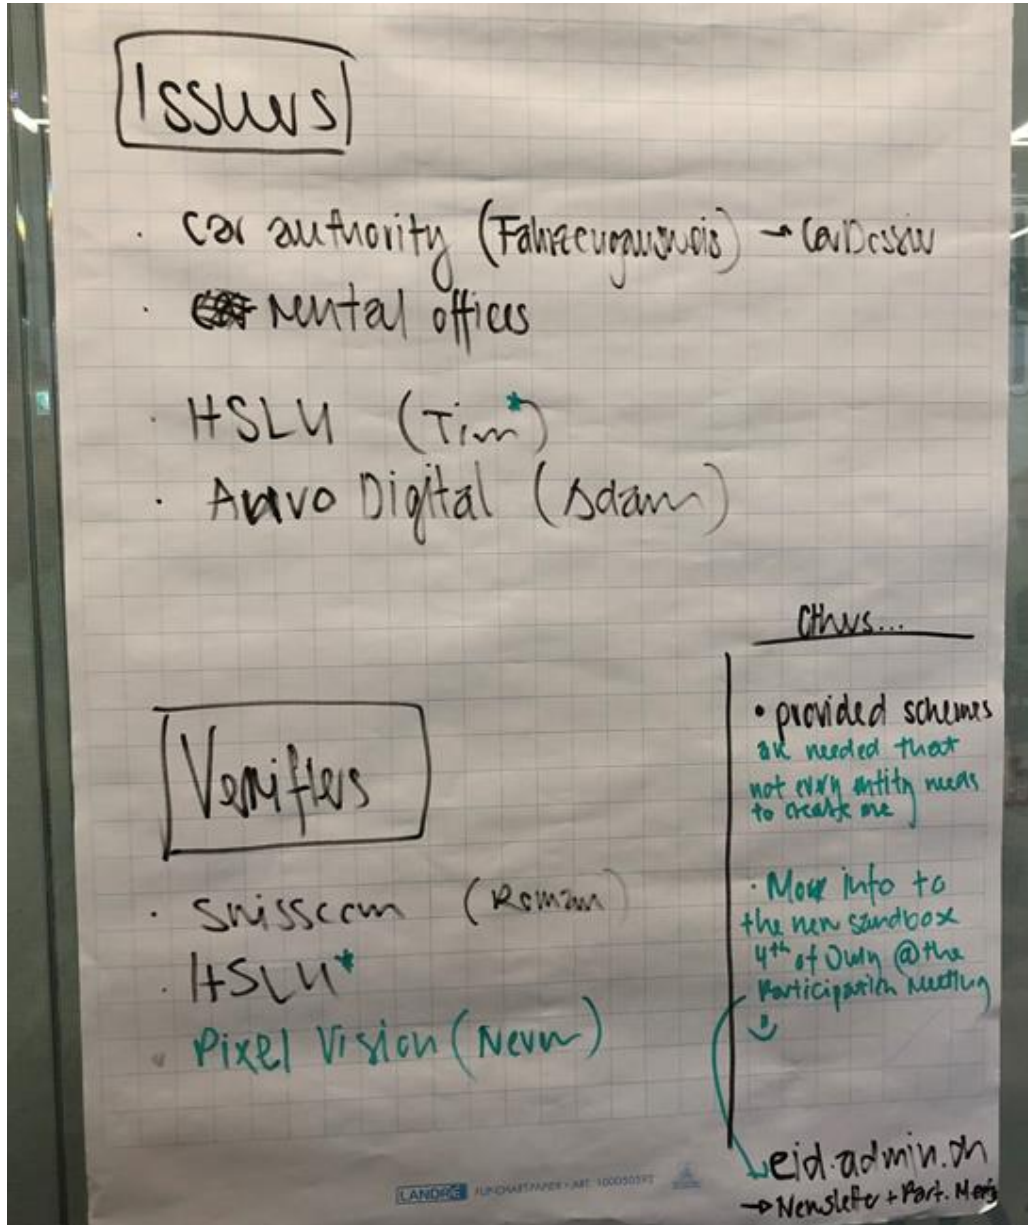 Issuers
· Car authority (Fahrzeugausweis) → CarDossier
· rental offices
· HSLU (Tim*)
· Adnovo Digital (Adam)
Verifiers
· Swisscom (Roman)
· HSLU*
· Pixel Vision (Nevin)
Others...
• provided schemes
are needed that
not every entity needs
to create one
· More info to
the new sandbox
4th of July @the
Participation Meeting
eid.admin.ch
→ Newsletter + Part. Meeting
LANDRÉ FLIPCHARTPAPIER • ART. 100050592